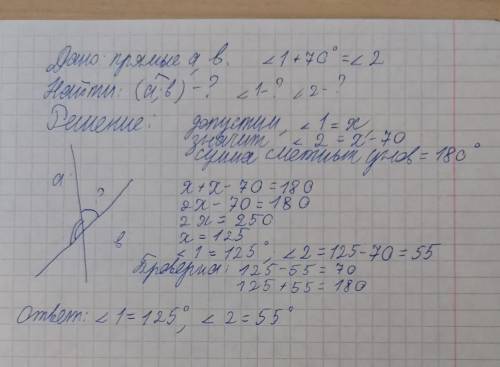 Дано: прямые a, в. ∠1+70°=∠2
Найти: (a;в) -? ∠1-? ∠2-?
Решение: допустим, ∠1=x
значит ∠2=x-70
сумма смежных углов=180°
a
?
в
x+x-70=180
2x-70=180
2x=250
x=125
∠1=125°, ∠2=125-70=55
Проверка: 125-55=70
125+55=180
Ответ: ∠1=125°, ∠2=55°